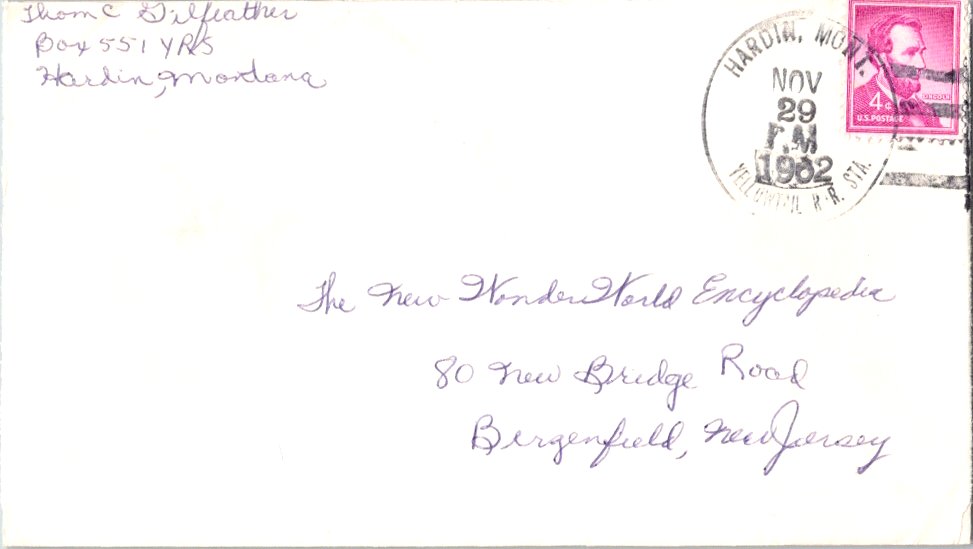 Thom C Gilfeather
Box 551 YRS
Hardin, Montana
HARDIN, MONT.
NOV
29
P.M
1962
YELLOWTAIL R.R. STA.
LINCOLN
4¢
U.S. POSTAGE
The New Wonder World Encyclopedia
80 New Bridge Road
Bergenfield, New Jersey